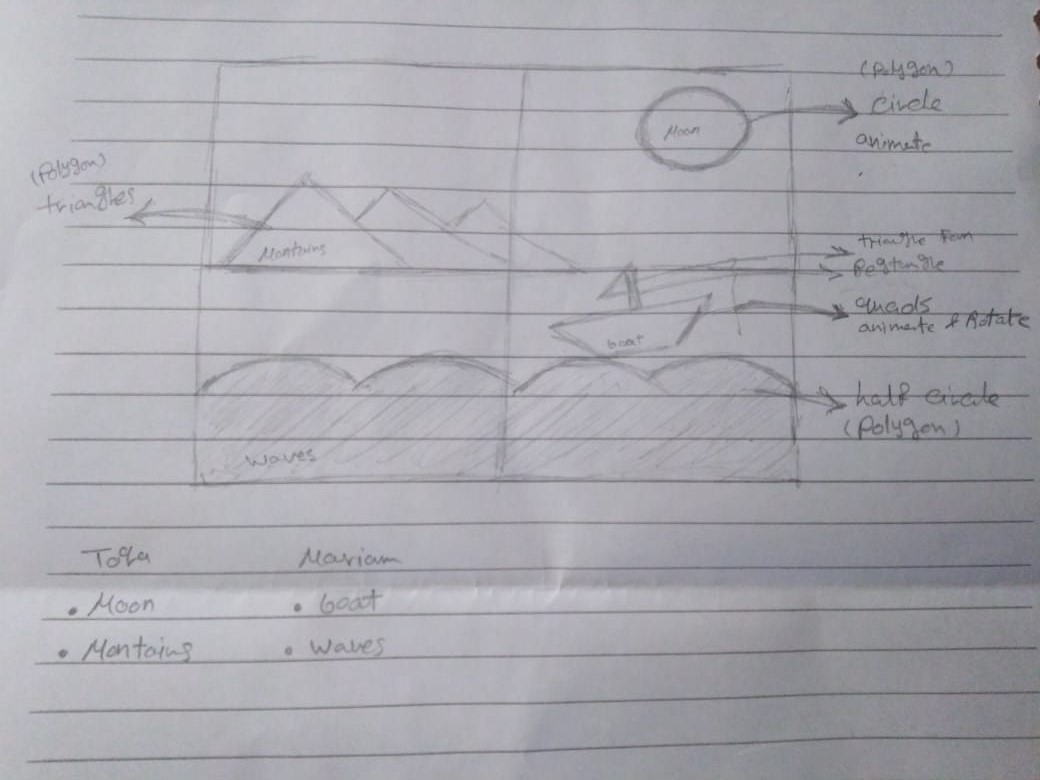 (Polygon)
circle
Moon
animate
(Polygon)
triangles
Montains
triangle Fan
Rectangle
quads
animate & Rotate
boat
half circle
(Polygon)
waves
Toqa Mariam
• Moon • boat
• Montains • waves